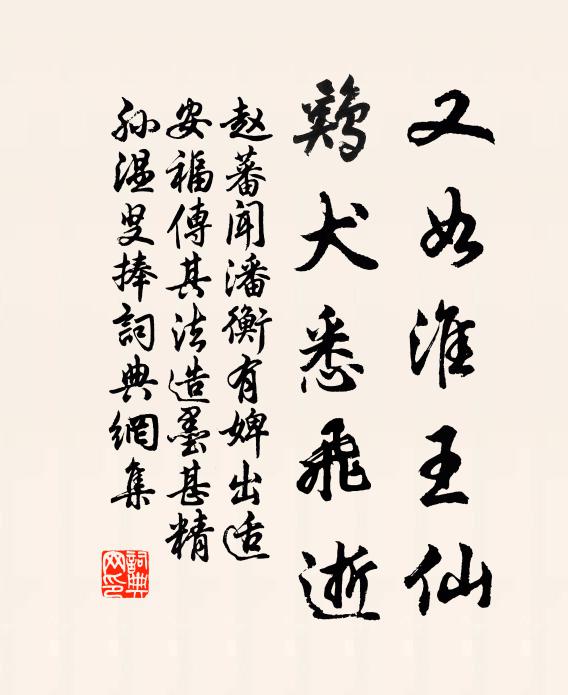 又如淮王仙
鸡犬悉飞逝
赵蕃闻潘衡有婢出适
安福傅其法造墨甚精
孙温叟捧詞典網集
詞典
网印